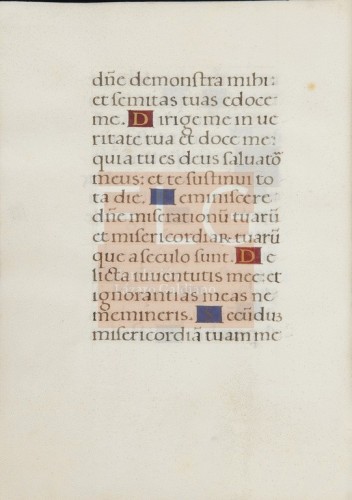 dñe demonstra mihi:
et semitas tuas edoce
me. Dirige me in ue
ritate tua et doce me:
quia tu es deus saluatõ
meus: et te sustinui to
ta die. Reminiscere
dñe miserationũ tuarũ
et misericordiaꝝ tuarũ
que a seculo sunt. De
licta iuuentutis mee: et
ignorantias meas ne
memineris. Secũdũ
misericordiã tuam me